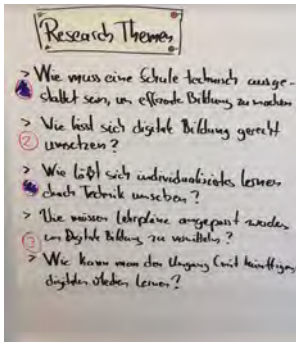 Research Themen
> Wie muss eine Schule technisch ausge-
stattet sein, um effiziente Bildung zu machen
> Wie lässt sich digitale Bildung gerecht
2 umsetzen?
> Wie läßt sich individualisiertes lernen
durch Technik umsetzen?
> Wie müssen Lehrpläne angepasst werden
3 um Digitale Bildung zu vermitteln?
> Wie kann man den Umgang mit künftigen
digitalen Medien lernen?